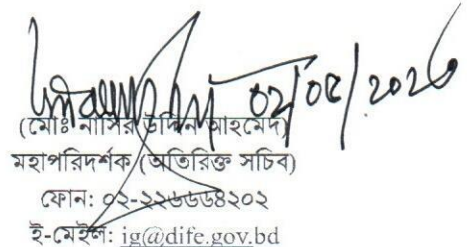 ০২/০৫/২০২৬
(মোঃ নাসির উদ্দিন আহমেদ)
মহাপরিদর্শক (অতিরিক্ত সচিব)
ফোন: ০২-২২৬৬৬৪২০২
ই-মেইল: ig@dife.gov.bd